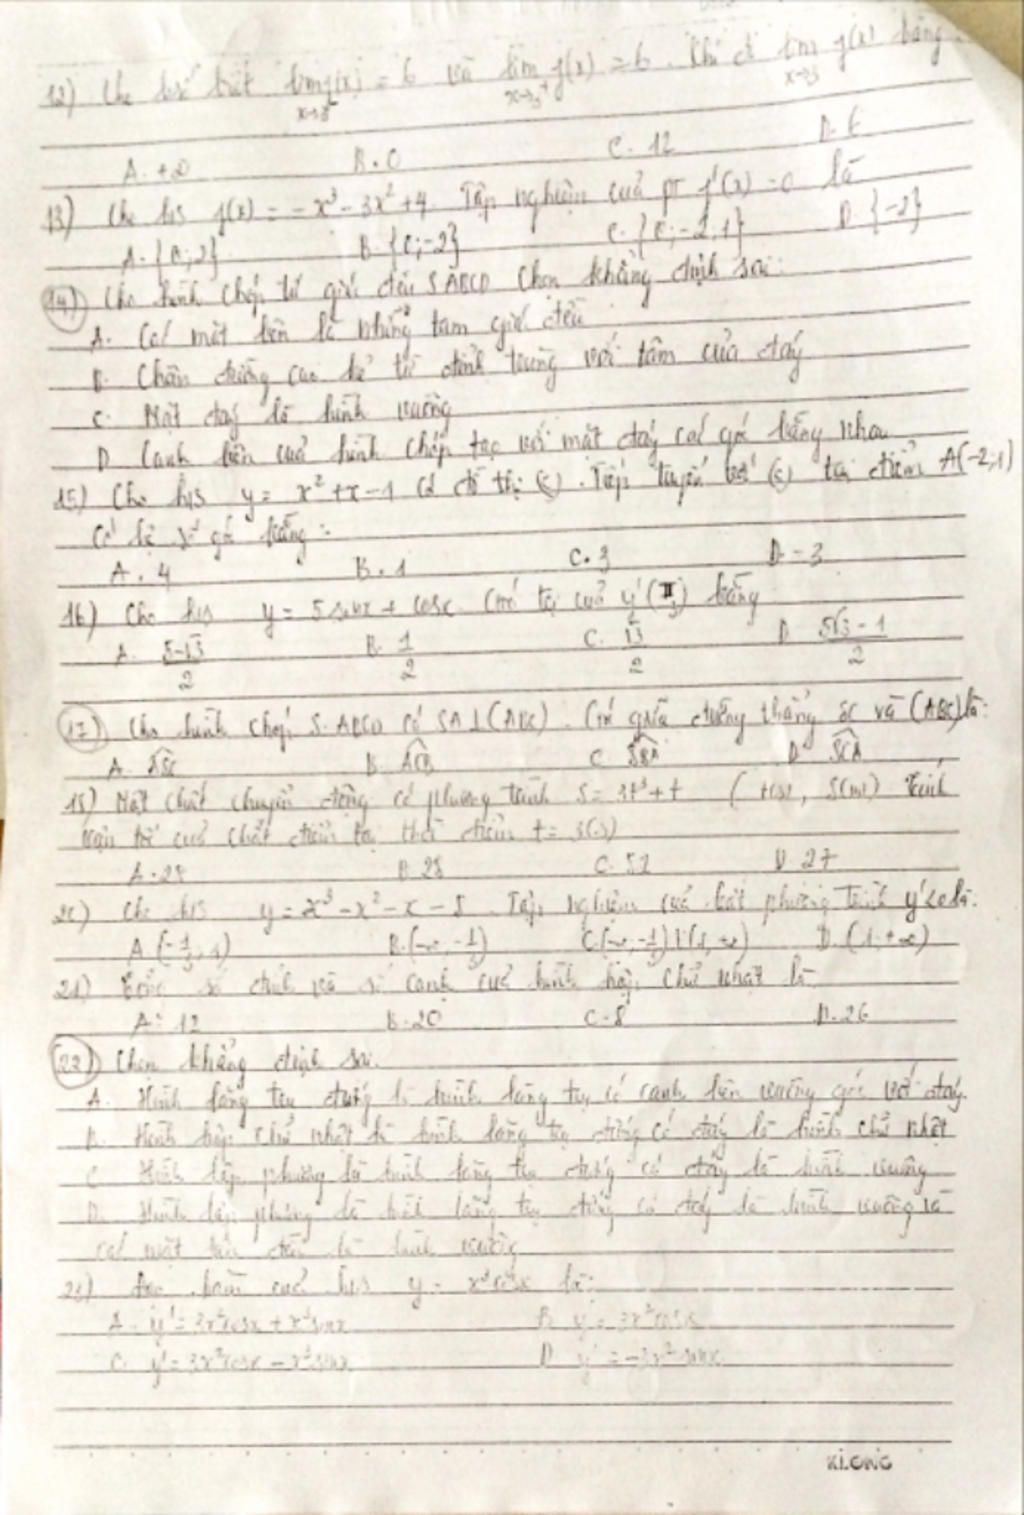 12) Cho biết lim f(x) = 6 và lim f(x) = 6. Khi đó lim f(x) bằng
x→3⁻ x→3⁺ x→3
A. +∞ B. 0 C. 12 D. 6
13) Cho h/s f(x) = -x³ - 3x² + 4. Tập nghiệm của pt f'(x) = 0 là
A. {0; 2} B. {0; -2} C. {0; -2; 1} D. {-2}
14) Cho hình chóp tứ giác đều SABCD Chọn khẳng định sai:
A. Các mặt bên là những tam giác đều
B. Chân đường cao kẻ từ đỉnh trùng với tâm của đáy
C. Mặt đáy là hình vuông
D Cạnh bên của hình chóp tạo với mặt đáy các góc bằng nhau
15) Cho h/s y = x² + x - 1 có đồ thị (c). Tiếp tuyến với (c) tại điểm A(-2,1)
Có hệ số góc bằng:
A. 4 B. 1 C. 3 D. -3
16) Cho h/s y = 5 sinx + cosx. Giá trị của y'(π/3) bằng
A. (5-√3)/2 B. 1/2 C. √3/2 D. (5√3 - 1)/2
17) Cho hình chóp S.ABCD có SA⊥(ABC). Góc giữa đường thẳng SC và (ABC) là:
A. ASC B. ACB C. SBA D. SCA
18) Một chất chuyển động có phương trình S = 3t³ + t (t(s), S(m)) Tính
vận tốc của chất điểm tại thời điểm t = 3(s)
B. 28 D. 27
20) Cho h/s y = x³ - x² - x - 5. Tập nghiệm của bất phương trình y'<0 là:
A (-1/3, 1) B. (-∞, -1/3) C. (-∞, -1/3) U (1, +∞) D. (1, +∞)
21) Tổng số đỉnh và số cạnh của hình hộp chữ nhật là
A. 12 B. 20 C. 8 D. 26
22) Chọn khẳng định sai.
A. Hình lăng trụ đứng là hình lăng trụ có cạnh bên vuông góc với đáy.
B. Hình hộp chữ nhật là hình lăng trụ đứng có đáy là hình chữ nhật
C Hình lập phương là hình lăng trụ đứng có đáy là hình vuông
D. Hình lập phương là hình lăng trụ đứng có đáy là hình vuông và
các mặt bên đều là hình vuông
Đạo hàm của h/s y = x³cosx là:
A. y' = 3x²cosx + x³sinx B. y' = 3x²cosx
C. y' = 3x²cosx - x³sinx D. y' = -3x²sinx
KLONG